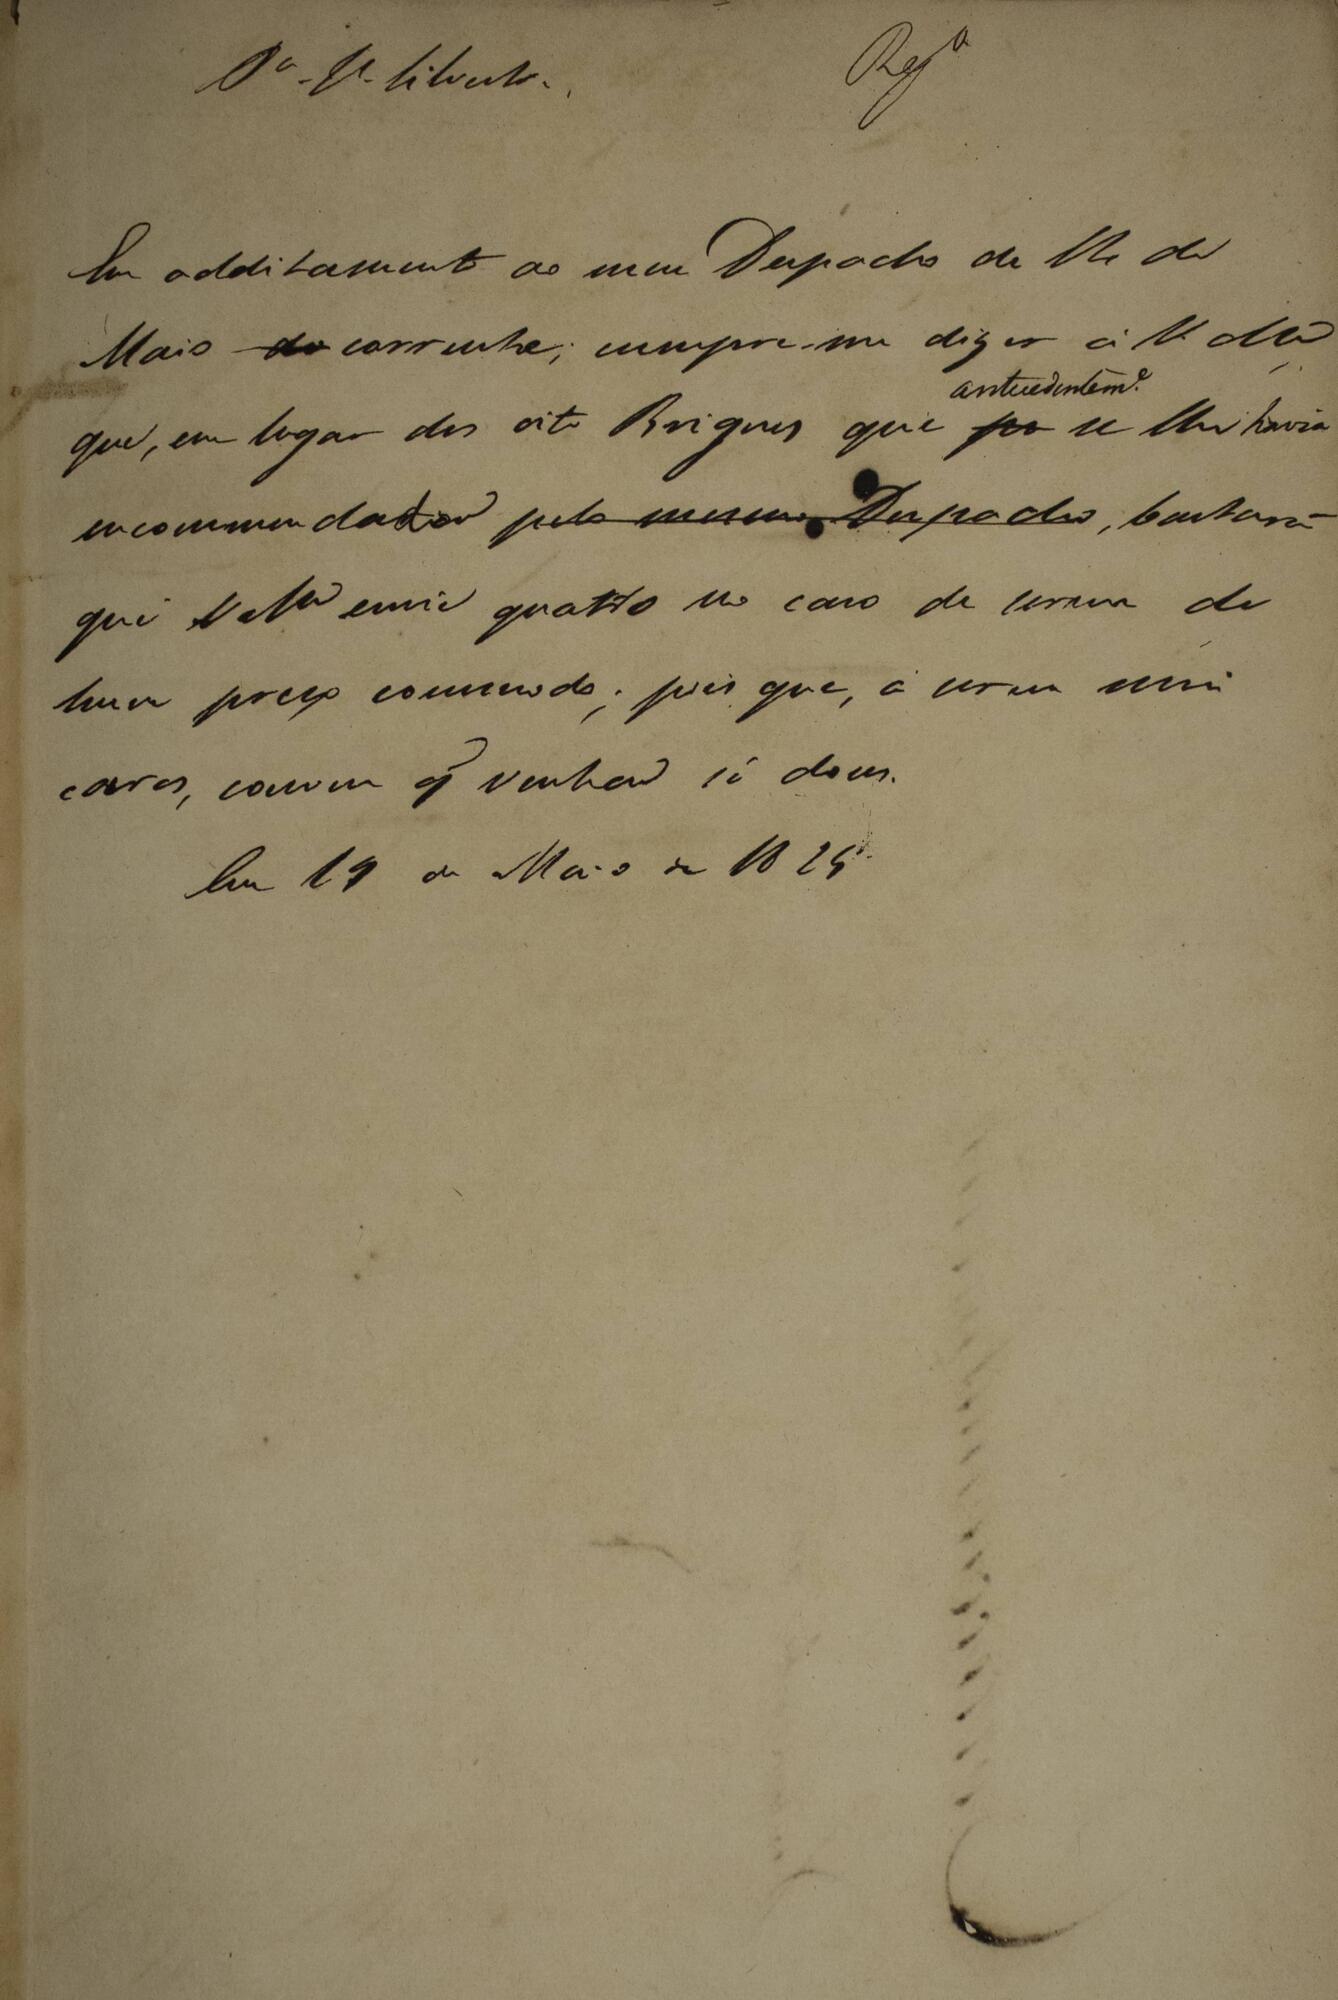 Pª Silvestre. Regª
Em additamento ao meu Despacho de 11 de
Maio do corrente, cumpre-me dizer á V. Mce
antecedentemᵉ.
que, em lugar dos oito Brigues que por se lhe havia
encommendado pelo mesmo Despacho, bastará
que VMce envie quatro no caso de serem de
hum preço commodo; pois que, á serem mui
caros, convem q̃ venhaõ só dous.
Em 19 de Maio de 1825